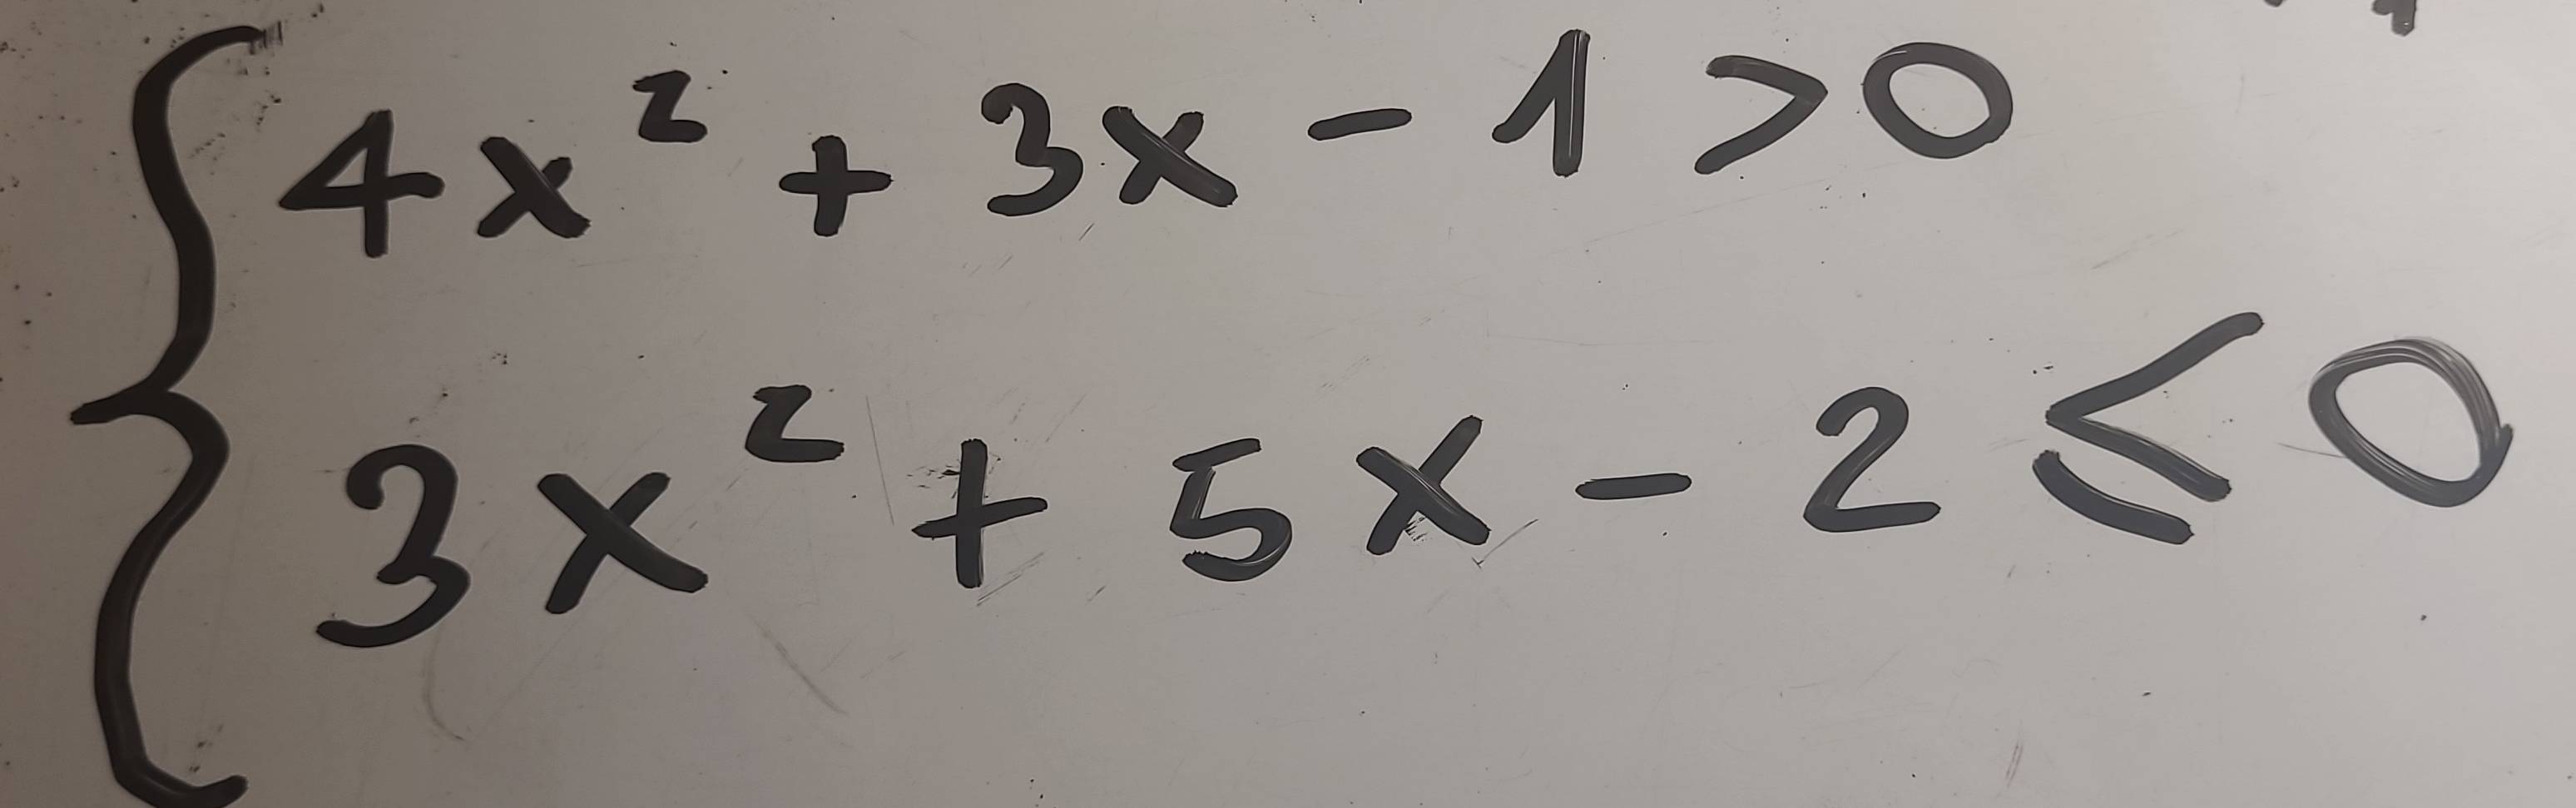 4x² + 3x - 1 > 0
3x² + 5x - 2 ≤ 0